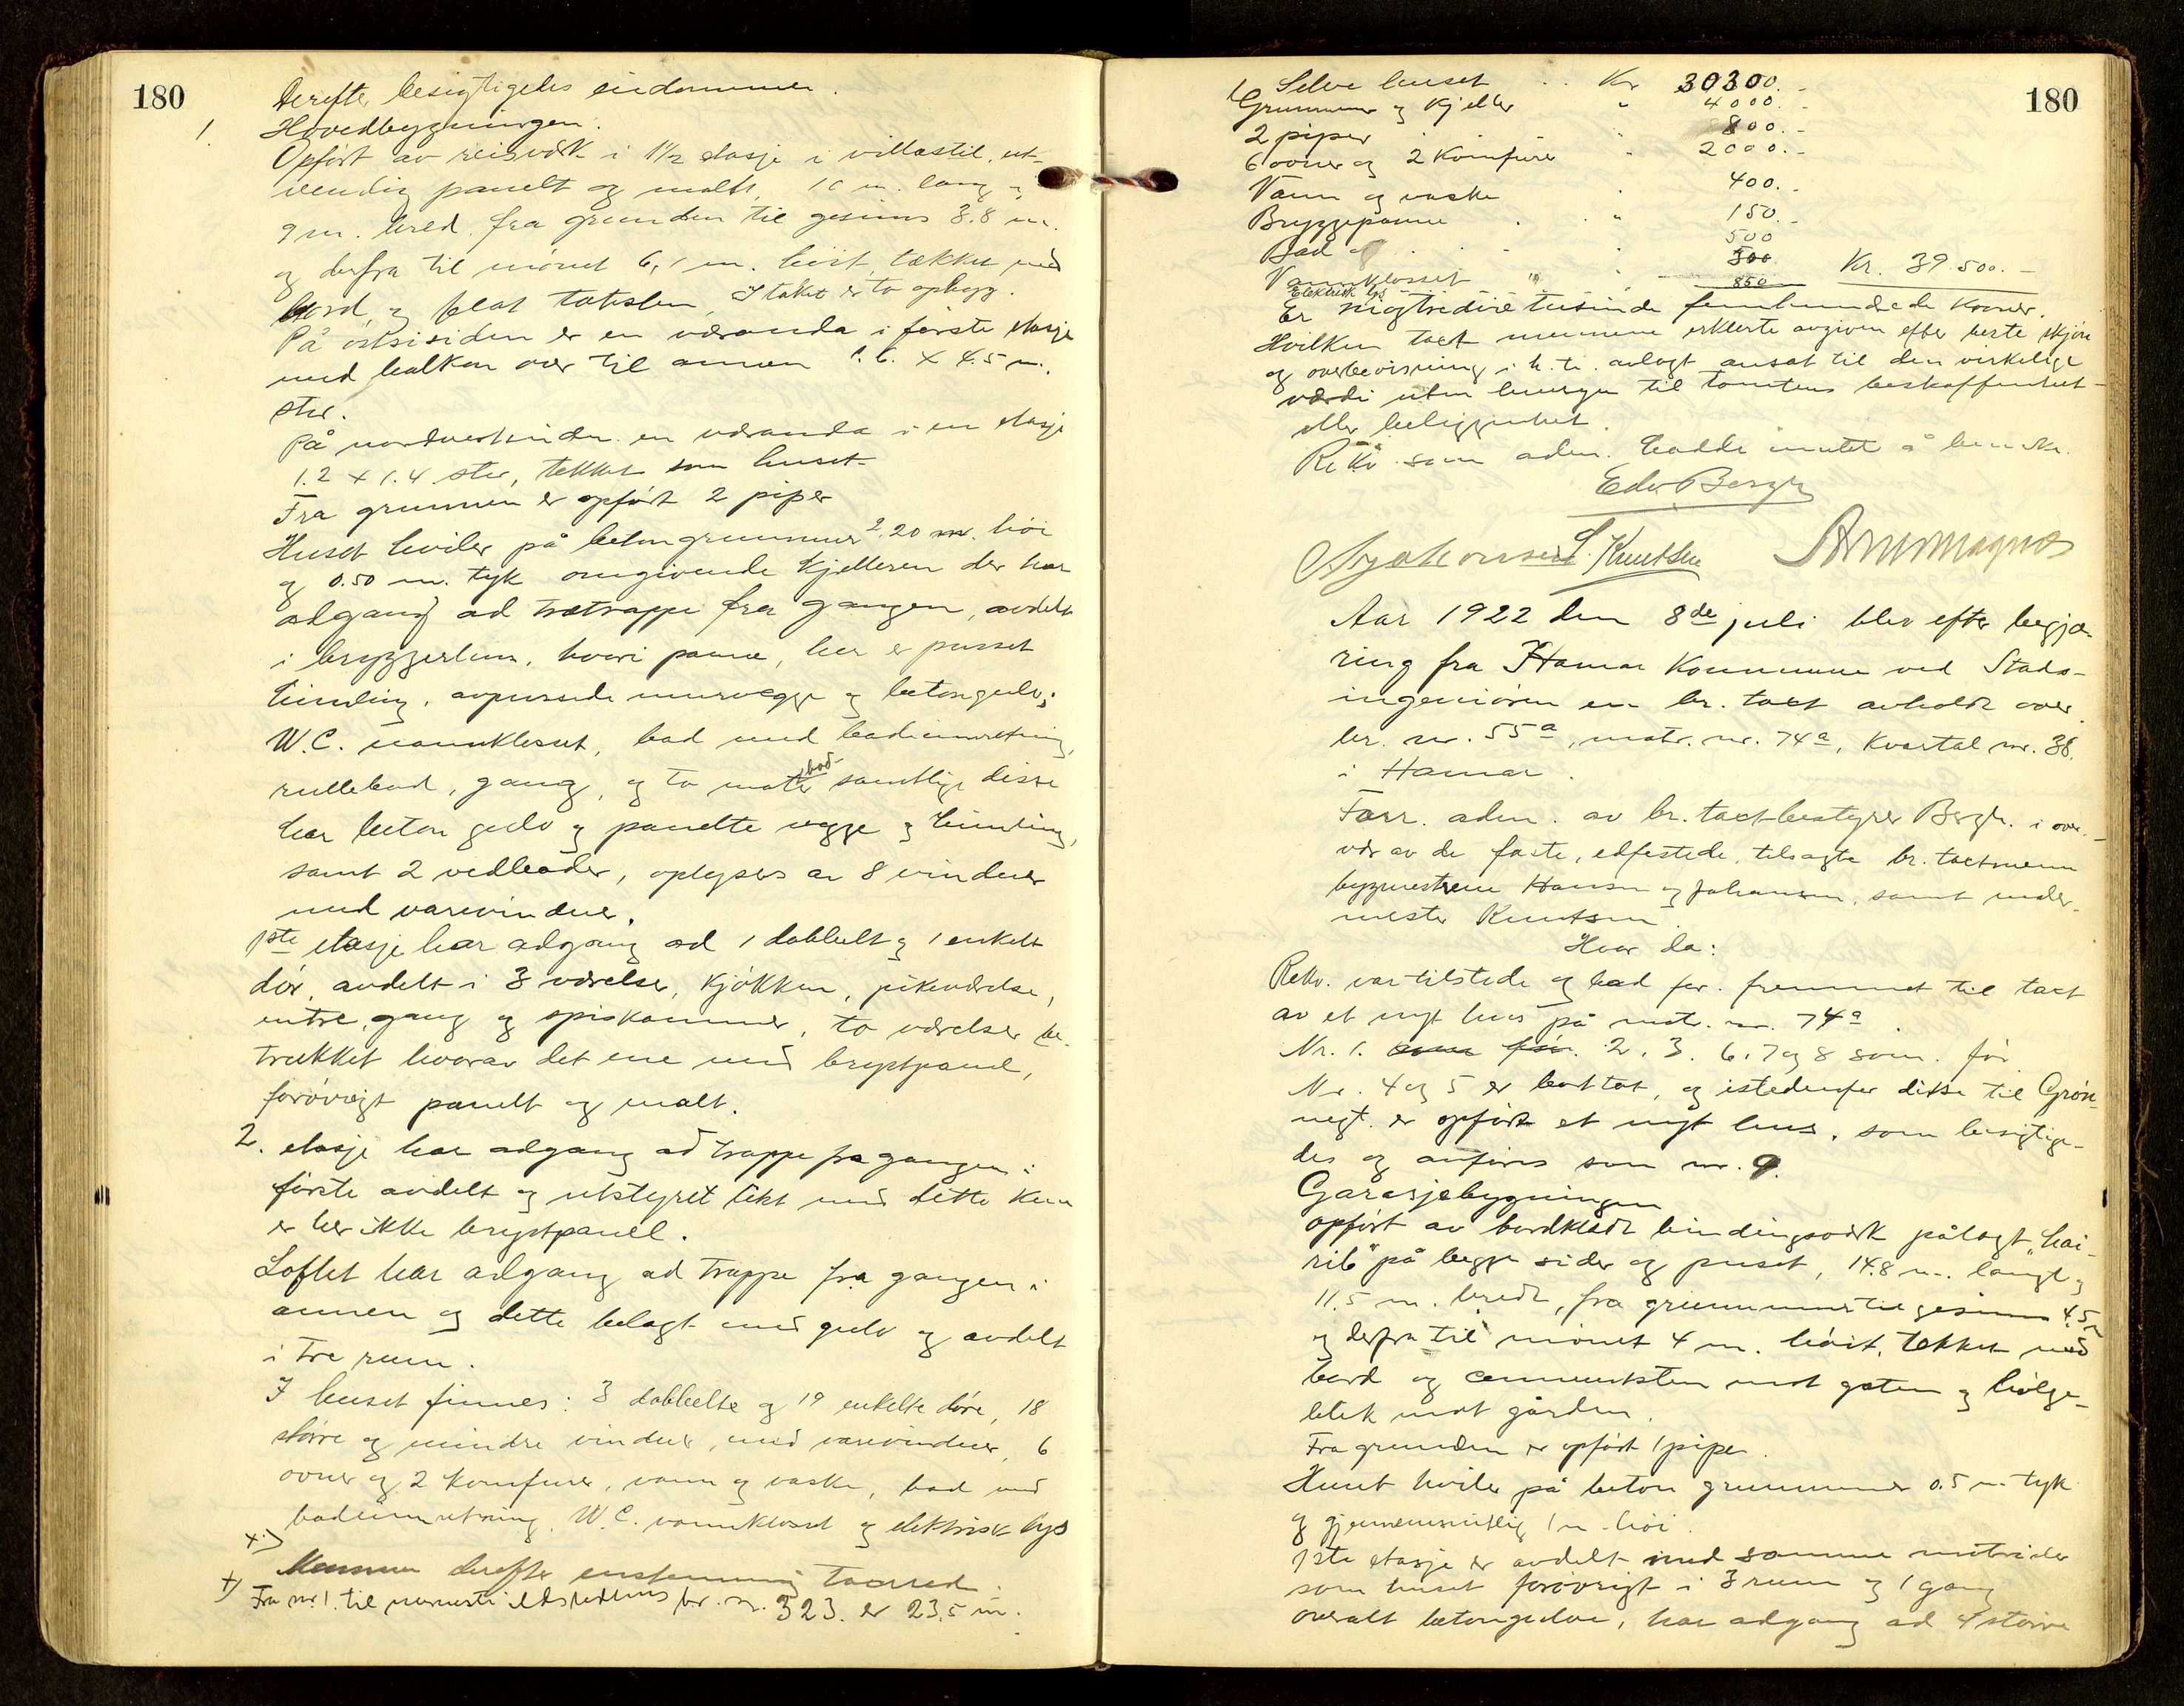 180
Derefter besigtigedes eiendommen.
1. Hovedbygningen.
Opført av reisverk i 1½ etasje i villastil, ut-
vendig panelt og malt, 10 m. lang og
9 m. bred. fra grunden til gesims 3.8 m.
og derfra til mønet 6,1 m. høit, tækket med
bord og flat taksten I taket er to opbygg.
På østsisiden er en veranda i første etasje
med balkon over til annen 1.6. x 4.5 m.
stor.
På nordvestsiden en veranda i en etasje
1.2 x 1.4 stor, tekket som huset.
Fra grunnen er opført 2 piper
Huset hviler på betongrunnmur 2.20 m. høi
og 0.50 m. tyk omgivende kjelleren der har
adgang ad trætrappe fra gangen, avdelt
i bryggerhus, hvori panne, her er pusset
himling, avpussede murvegge og betongulv;
W.C. vannkloset, bad med badeinnretning,
rullebod, gang, og to matboder samtlige disse
har beton gulv og panelte vegge og himling,
samt 2 vedboder, oplyses av 8 vinduer
med varevinduer.
1ste etasje har adgang ad 1 dobbelt og 1 enkelt
dør, avdelt i 3 værelser, kjøkken, pikeværelse,
entre, gang og spiskammer, to værelser be-
trukket hvorav det ene med brystpanel,
forøvrigt panelt og malt.
2. etasje har adgang ad trappe fra gangen i
første avdelt og utstyret likt med dette kun
er her ikke brystpanel.
Loftet har adgang ad trappe fra gangen i
annen og dette belagt med gulv og avdelt
i tre rum.
I huset finnes: 3 dobbelte og 19 enkelte døre, 18
større og mindre vinduer, med varevinduer, 6
ovner og 2 komfurer, vann og vaske, bad med
badeinnretning, W.C. vannkloset og elektrisk lys
x)
Mennene derefter enstemmig
x) Fra nr. 1. til nærmeste ildstedshus br. nr. 323. er 23.5 m.
180
1, Selve huset .. Kr 30300.-
Grunnmur og kjeller " 4000.-
2 piper " 800.-
6 ovner og 2 komfurer " 2000.-
Vann og vaske 400.-
Bryggepanne . " 150.-
Bad 500
Vannklosset " 500
Elektrisk lys 850 Kr. 39.500.-
Er nigtredive tusinde femhundrede kroner.
Hvilken takst mennene erklærte avgiven efter beste skjøn
og overbevisning i h. t. avlagt ansat til den virkelige
værdi uten hensyn til tomtens beskaffenhet
eller beliggenhet.
Rekv. som adm. hadde intet å bemerke.
Edv. Bergh
L. Knutsen
Aar 1922 den 8de juli blev efter begjæ-
ring fra Hamar Kommune ved Stads-
ingeniøren en br. takst avholdt over
br. nr. 55a, matr. nr. 74a, Kvartal nr. 38.
i Hamar.
Forr. adm. av br. takstbestyrer Bergh. i over-
vær av de faste, edfestede, tilsagte br. takstmenn
bygmestrene Hansen og Johansen, samt murer-
mester Knutsen
Hvor da:
Rekv. var tilstede og bad for. fremmet til takst
av et nyt hus på matr. nr. 74a.
Nr. 1. som før. 2. 3. 6. 7 og 8 som før
Nr. 4 og 5 er borttat, og istedenfor disse til Grøn-
negt. er opført et nyt hus, som besigtige-
des og anføres som nr. 9.
Garasjebygningen
opført av bordklædt bindingsverk pålagt "hai-
rib" på begge sider og pusset, 14.8 m. langt og
11.5 m. bredt, fra grunnmur til gesims 4.5 m
og derfra til mønet 4 m. høit, tekket med
bord og cementsten mot gaten og bølge-
blik mot gården.
Fra grunden er opført 1 pipe.
Huset hviler på beton grunnmur 0.5 m tyk
og gjennemsnitlig 1 m. høi.
1ste etasje er avdelt med samme
som huset forøvrigt i 3 rum og 1 gang
overalt betongulve, har adgang ad 4 større